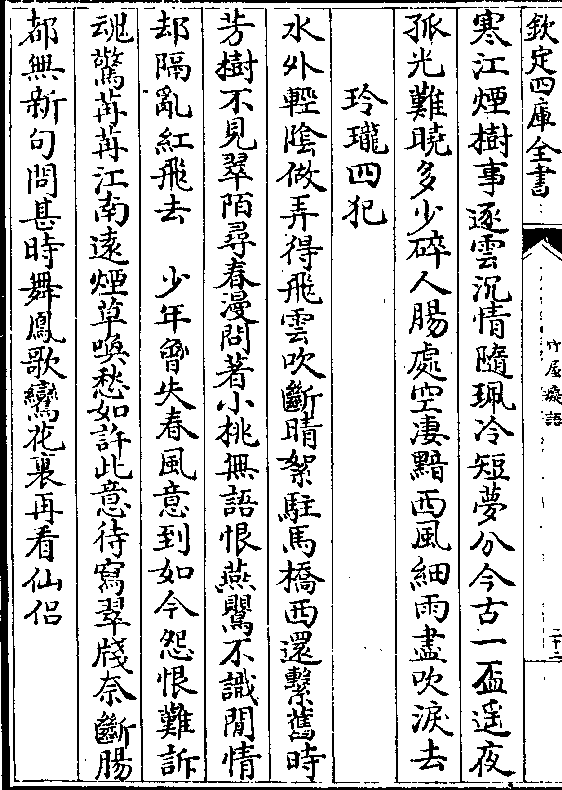 欽定四庫全書
竹屋癡語
二十二
寒江煙樹事逐雲沉情隨珮冷短夢分今古一盃遥夜
孤光難曉多少碎人腸處空凄黯西風細雨盡吹淚去
玲瓏四犯
水外輕陰做弄得飛雲吹斷晴絮駐馬橋西還繫舊時
芳樹不見翠陌尋春漫問著小桃無語恨燕鸎不識閒情
却隔亂紅飛去　少年曾失春風意到如今怨恨難訴
魂驚苒苒江南遠煙草喚愁如許此意待寫翠牋奈斷腸
都無新句問甚時舞鳳歌鸞花裏再看仙侣